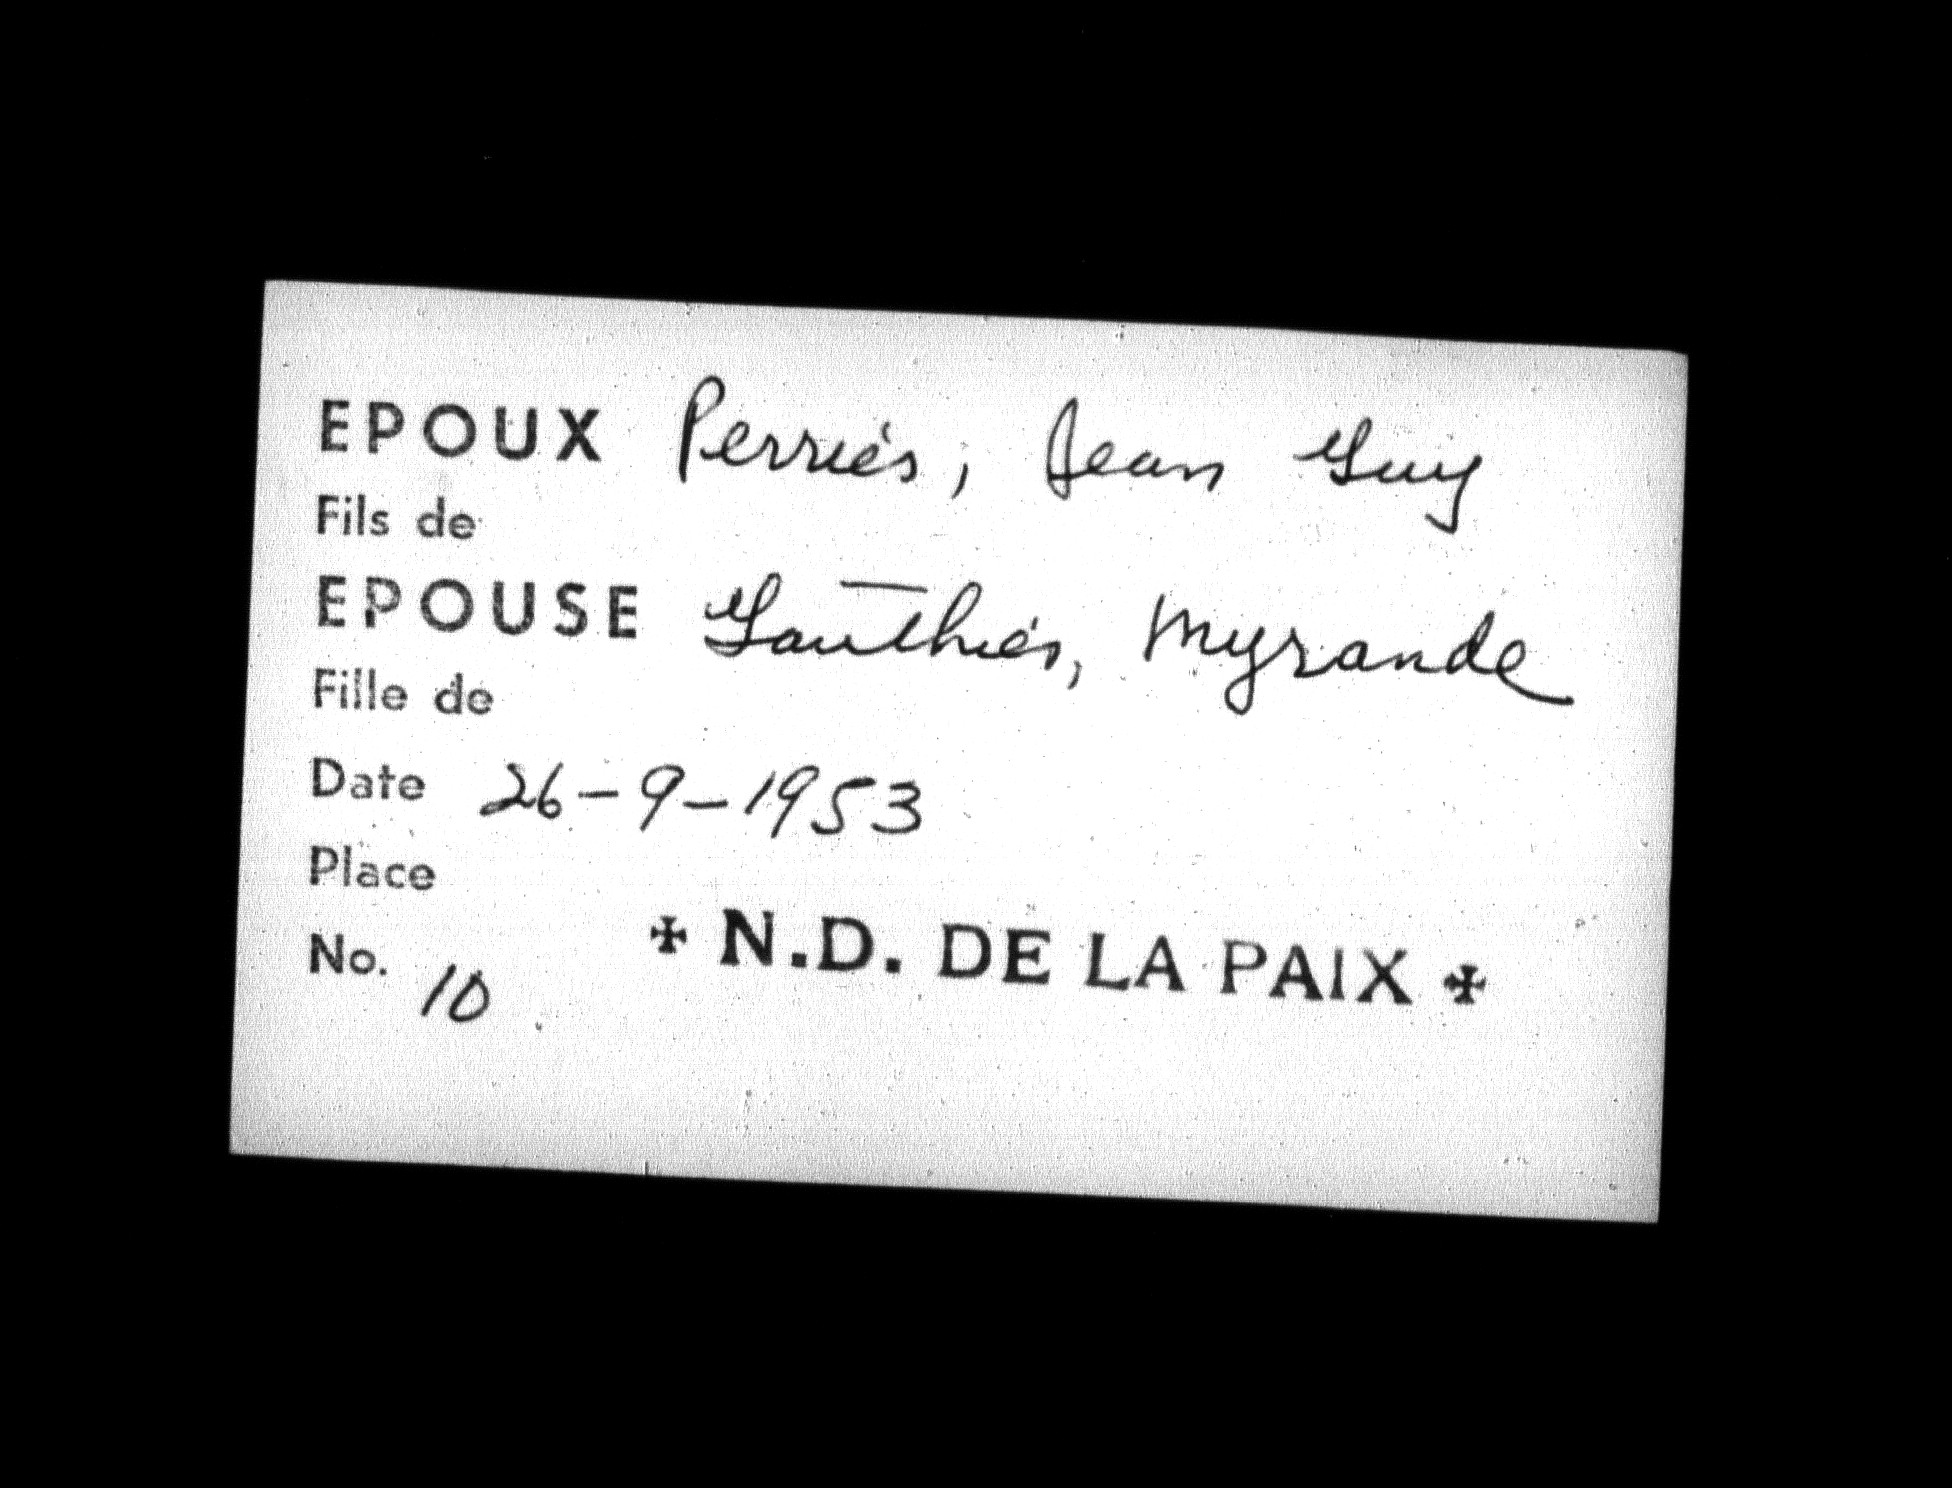 EPOUX Perrier, Jean Guy
Fils de
EPOUSE Gauthier, Myrande
Fille de
Date 26-9-1953
Place
No. 10
✠ N.D. DE LA PAIX ✠